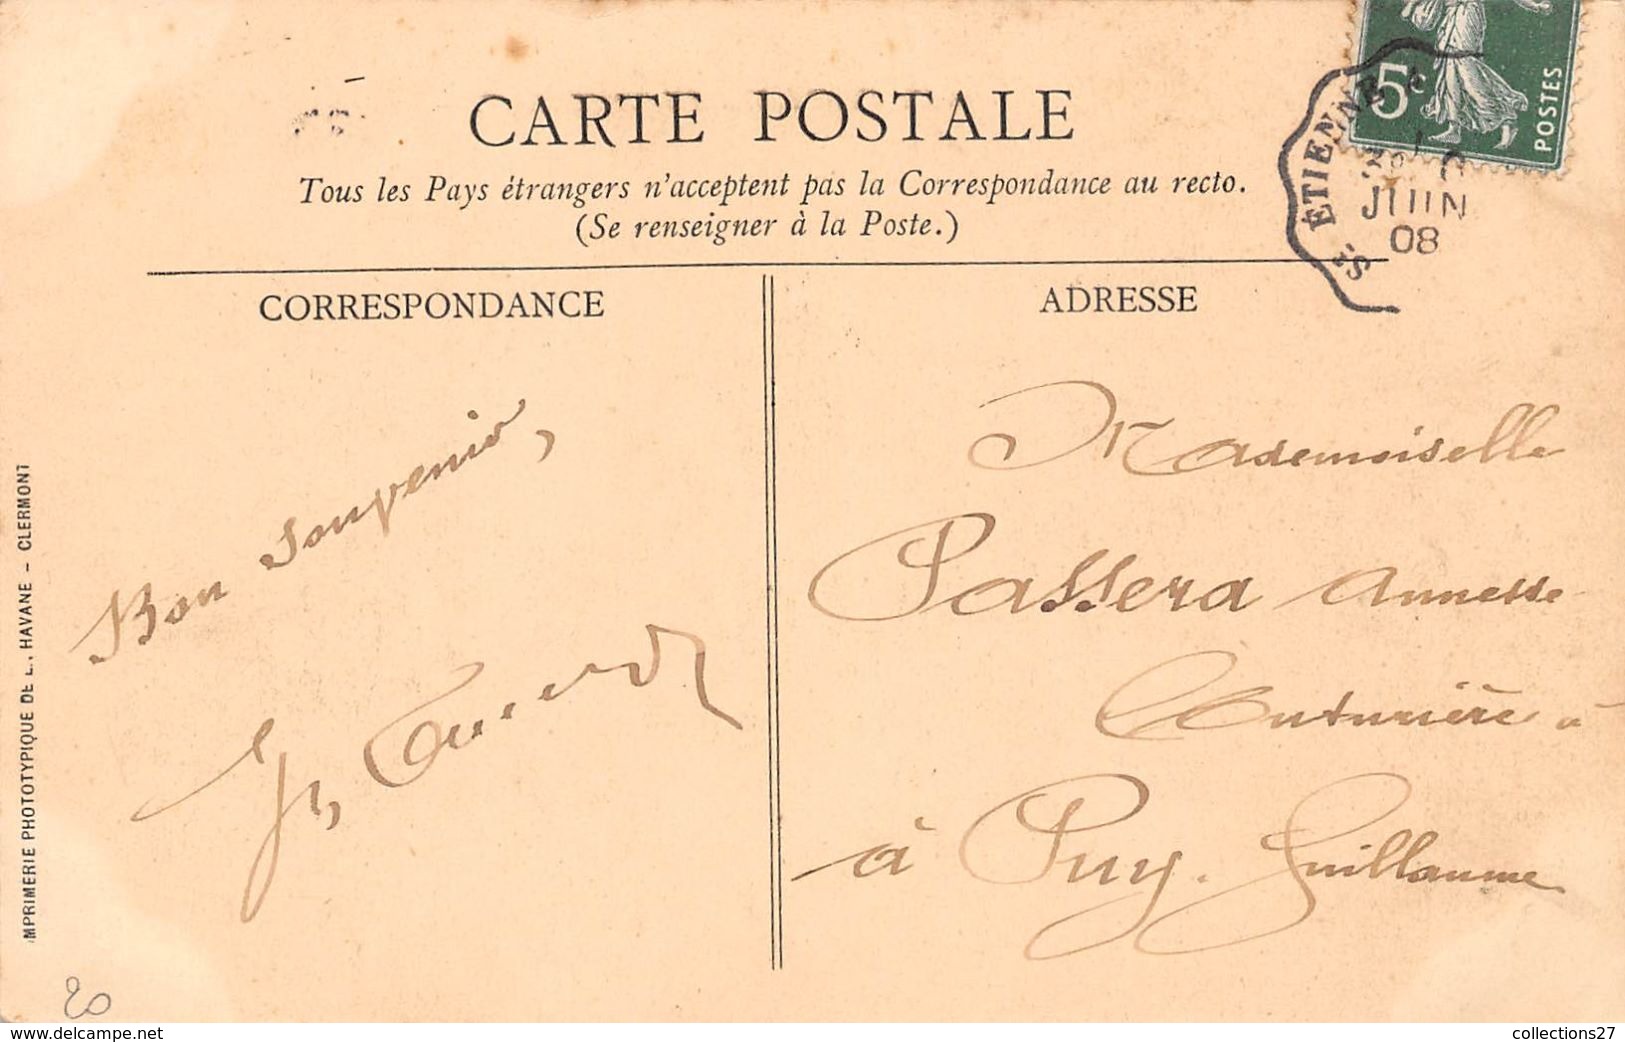 CARTE POSTALE
Tous les Pays étrangers n'acceptent pas la Correspondance au recto.
(Se renseigner à la Poste.)
5c
POSTES
St ÉTIENNE A
JUIN
08
CORRESPONDANCE
Bon souvenir,
ADRESSE
Mademoiselle
Passera Annette
Couturière à
à Puy-Guillaume
IMPRIMERIE PHOTOTYPIQUE DE L. HAVANE - CLERMONT
20
www.delcampe.net
collections27